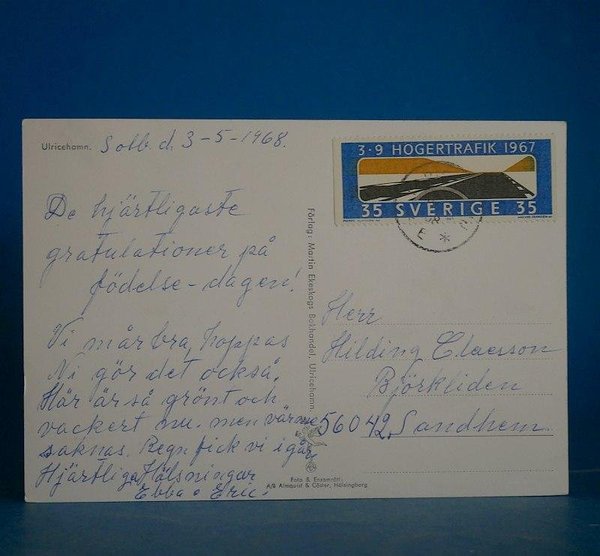 Ulricehamn. Solb. d. 3-5-1968.
De hjärtligaste
gratulationer på
födelse-dagen!
Vi mår bra, hoppas
Ni gör det också.
Här är så grönt och
vackert nu. men värme
saknas. Regn fick vi igår
Hjärtliga Hälsningar
Ebba o Eric.
Förlag: Martin Ekeskogs Bokhandel, Ulricehamn.
Foto & Ensamrätt
A/B Almquist & Cöster, Hälsingborg
3·9 HÖGERTRAFIK 1967
35 SVERIGE 35
Herr
Hilding Claesson
Björkliden
56042, Sandhem